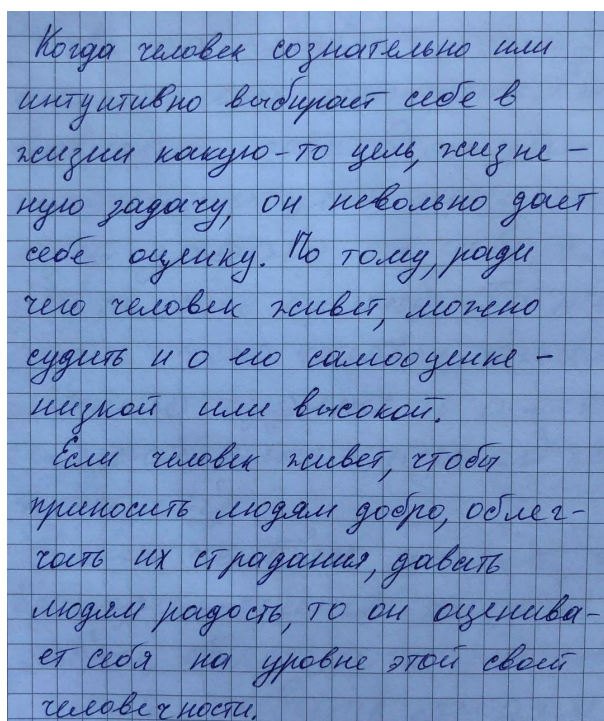 Когда человек сознательно или
интуитивно выбирает себе в
жизни какую-то цель, жизне-
ную задачу, он невольно дает
себе оценку. По тому, ради
чего человек живет, можно
судить и о его самооценке -
низкой или высокой.
Если человек живет, чтобы
приносить людям добро, облег-
чать их страдания, давать
людям радость, то он оценива-
ет себя на уровне этой своей
человечности.